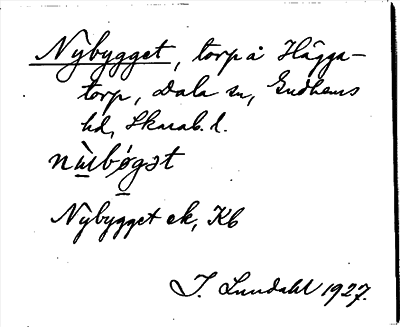 Nybygget, torp å Hägga-
torp, Dala sn, Gudhems
hd, Skarab. l.
nỳbøgət
Nybygget ek, Kb
I. Lundahl 1927.